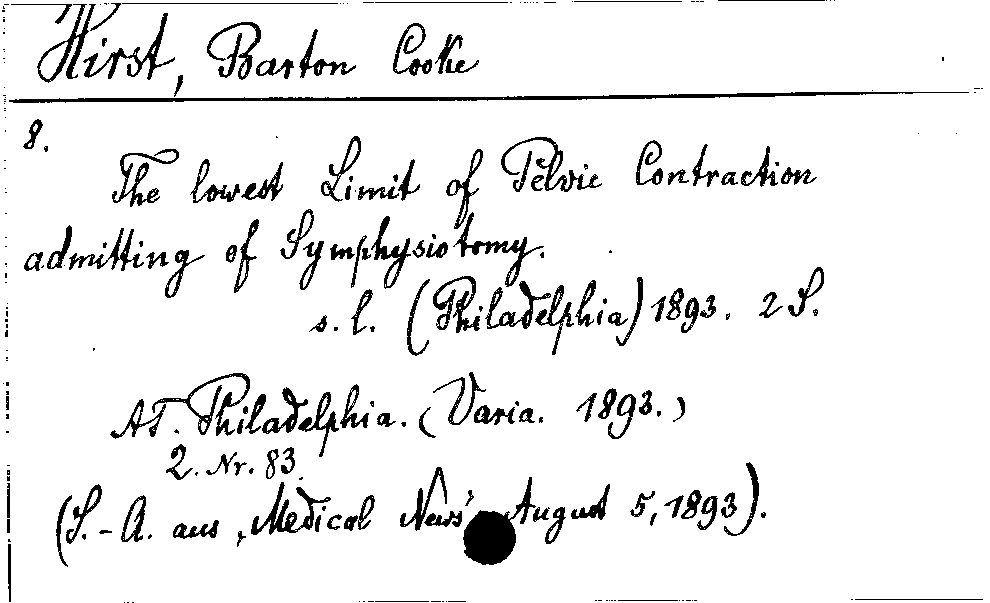 Hirst, Barton Cooke
8.
The lowest Limit of Pelvic Contraction
admitting of Symphysiotomy.
s. l. (Philadelphia) 1893. 2 S.
AT. Philadelphia. (Varia. 1893.)
2. Nr. 83.
(S.-A. aus „Medical News“ August 5, 1893).